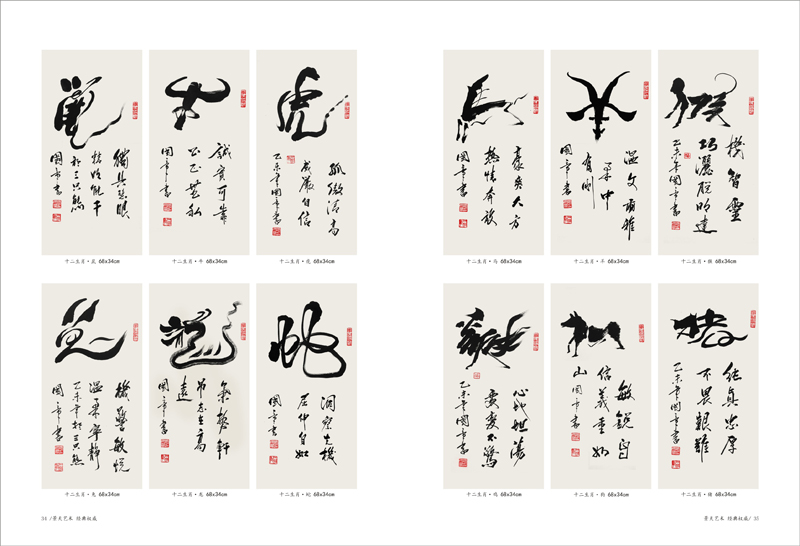 鼠
独具慧眼
精明能干
于三只熊
国章书
十二生肖·鼠 68x34cm
牛
诚实可靠
公正无私
国章书
十二生肖·牛 68x34cm
虎
孤傲清高
威严自信
乙未年国章书
十二生肖·虎 68x34cm
兔
机警敏悦
温柔宁静
乙未年于三只熊
国章书
十二生肖·兔 68x34cm
龙
气宇轩
昂志在高
远
国章书
十二生肖·龙 68x34cm
蛇
洞察先机
屈伸自如
国章书
十二生肖·蛇 68x34cm
54 /景天艺术 经典权威
马
豪爽大方
热情奔放
国章书
十二生肖·马 68x34cm
羊
温文尔雅
柔中
有刚
国章书
十二生肖·羊 68x34cm
猴
机智灵
巧洒脱明达
乙未年国章书
十二生肖·猴 68x34cm
鸡
心地坦荡
乙未年国章书
十二生肖·鸡 68x34cm
狗
敏锐自
信义重如
山
国章书
十二生肖·狗 68x34cm
猪
纯真忠厚
不畏艰难
乙未年国章书
十二生肖·猪 68x34cm
景天艺术 经典权威/ 55